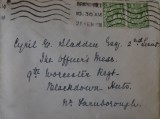 Cyril E. Sladden Esq. 2nd Lieut.
The Officer's Mess.
9th Worcester Regt.
Blackdown Huts.
Nr Farnborough.